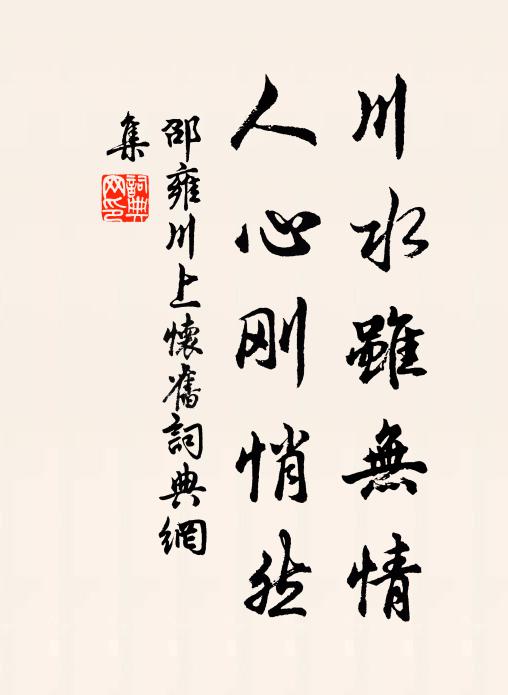 川水雖無情
人心刚悄然
邵雍川上懷舊詞典網
集
詞典網印